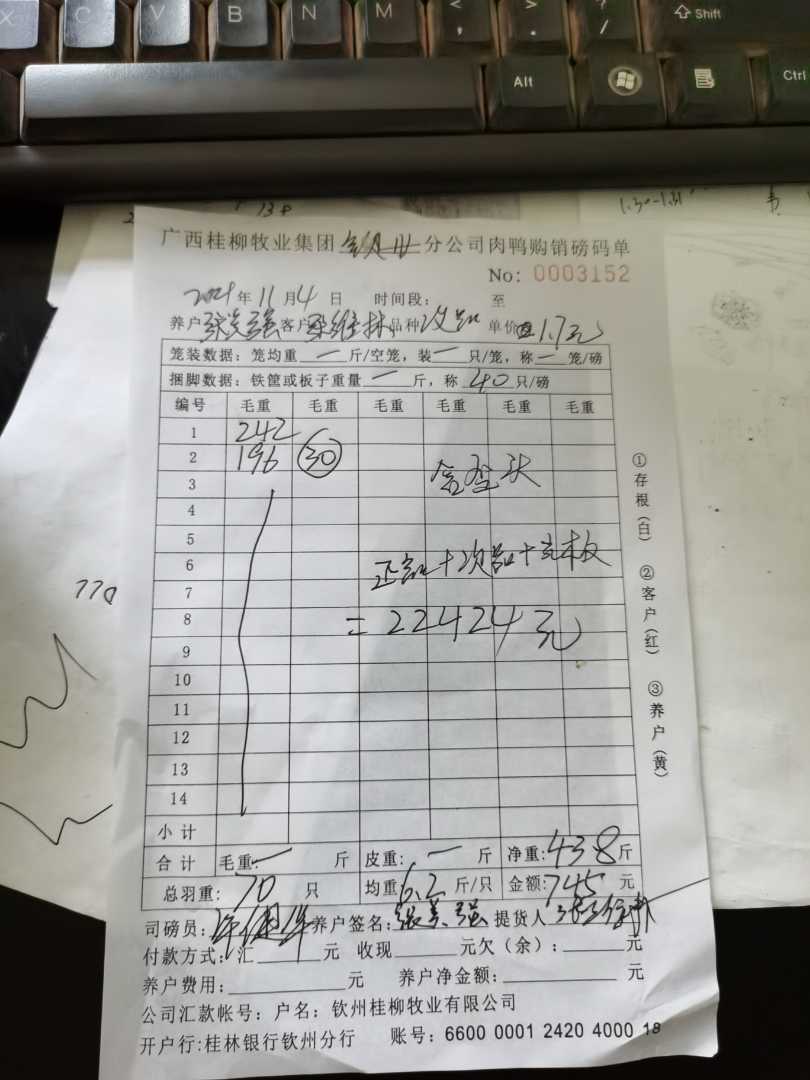 X C V B N M < , > . ? / Shift
Alt Ctrl
138 1.30-1.31
广西桂柳牧业集团 分公司肉鸭购销磅码单
No: 0003152
2021年11月4日 时间段: 至
养户 张美强 客户 维林 品种 次品 单价 1.7元
笼装数据: 笼均重 一 斤/空笼, 装 一 只/笼, 称 一 笼/磅
捆脚数据: 铁筐或板子重量 一 斤, 称 40 只/磅
编号 毛重 毛重 毛重 毛重 毛重 毛重
1 242
2 196 30
3
4
5
6 正品+次品+克木板
7
8 =22424元
9
10
11
12
13
14
小计
合计 毛重: 一 斤 皮重: 一 斤 净重: 438斤
总羽重: 70 只 均重 6.2 斤/只 金额: 745 元
司磅员: 养户签名: 张美强 提货人
付款方式: 汇 元 收现 元欠(余): 元
养户费用: 元 养户净金额: 元
公司汇款帐号: 户名: 钦州桂柳牧业有限公司
开户行:桂林银行钦州分行 账号: 6600 0001 2420 4000 18
①存根(白) ②客户(红) ③养户(黄)
770